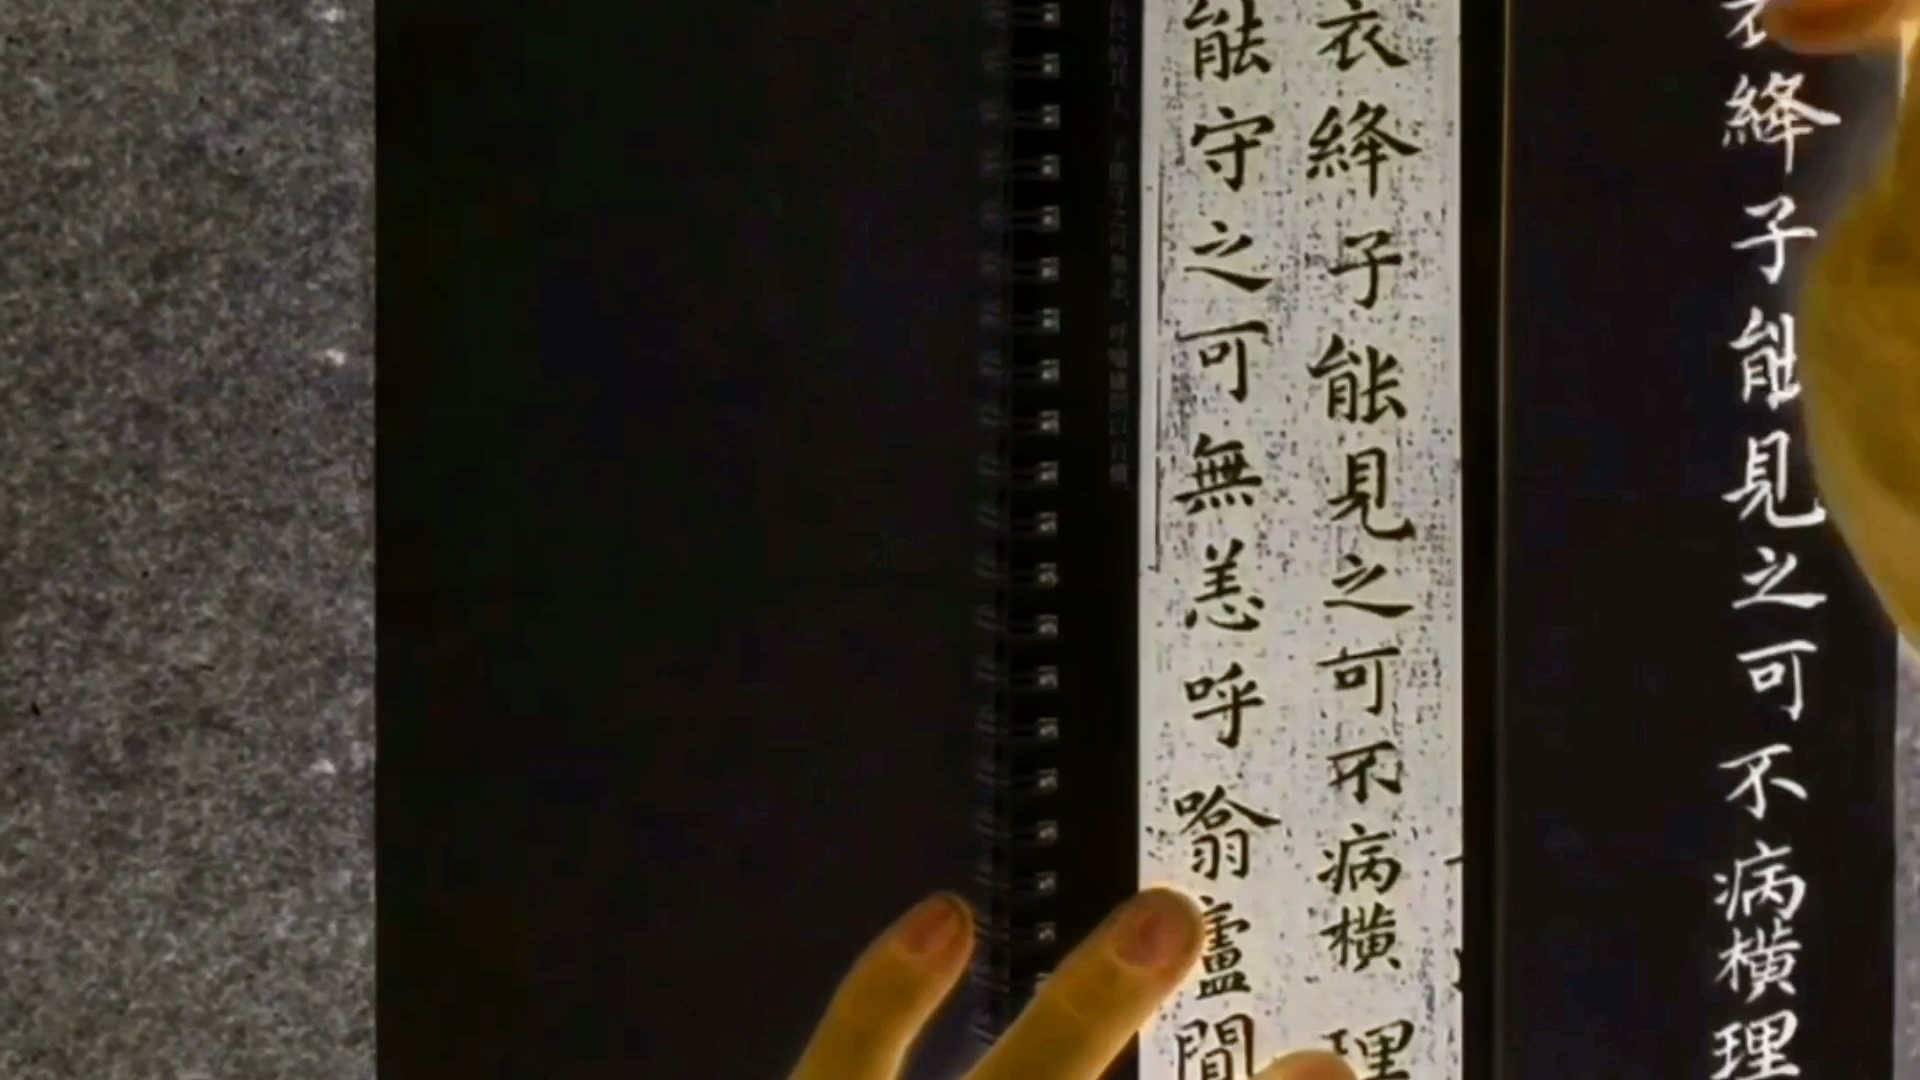 衣絳子能見之可不病橫理
衣絳子能見之可不病橫理
能守之可無恙呼噏廬間